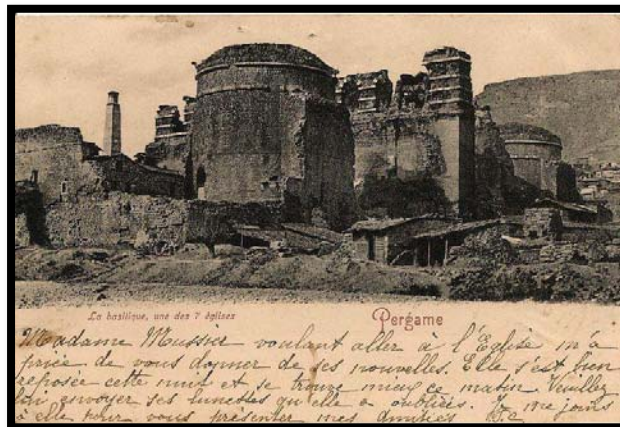 La basilique, une des 7 églises
Pergame
Madame Mussier voulant aller à l'Eglise m'a
priée de vous donner de ses nouvelles. Elle s'est bien
reposée cette nuit et se trouve mieux ce matin. Veuillez
lui envoyer ses lunettes qu'elle a oubliées. Je me joins
à elle pour vous présenter mes amitiés